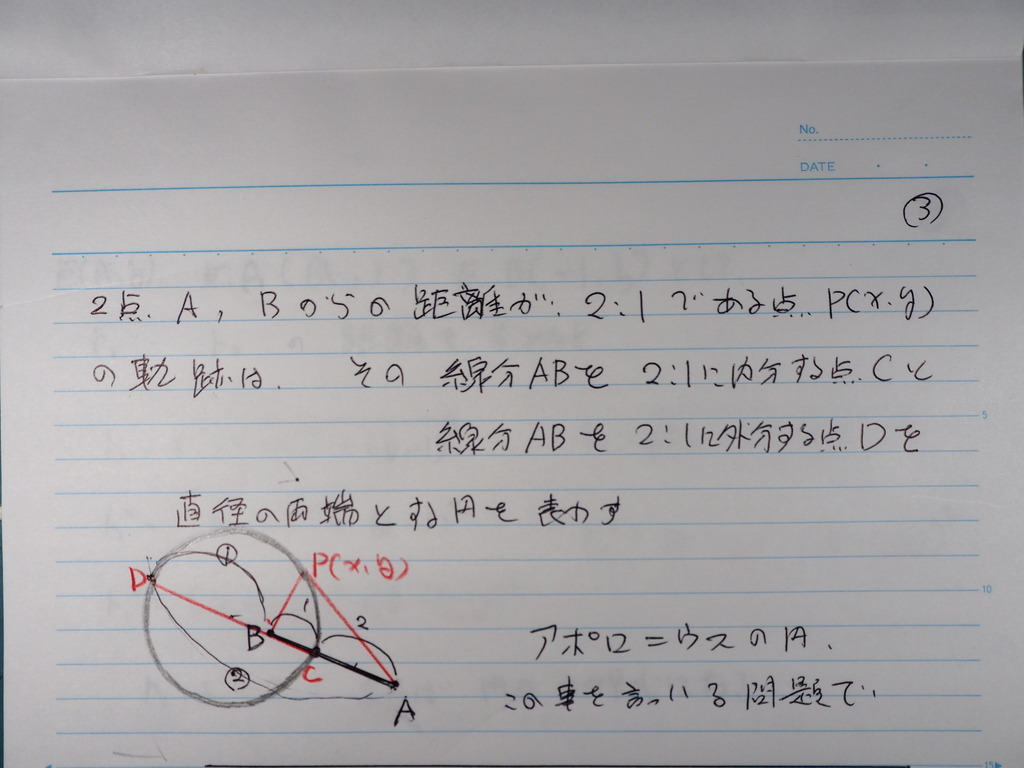 No.
DATE ・ ・
③
2点 A, B からの距離が 2:1 である点 P(x, y)
の軌跡は、その 線分ABを 2:1に内分する点 Cと
5
線分 ABを 2:1に外分する点 Dを
直径の両端とする円を表わす
①
D
P(x, y)
10
1
2
B
アポロニウスの円.
C
②
この事を言っている問題で、
A
15